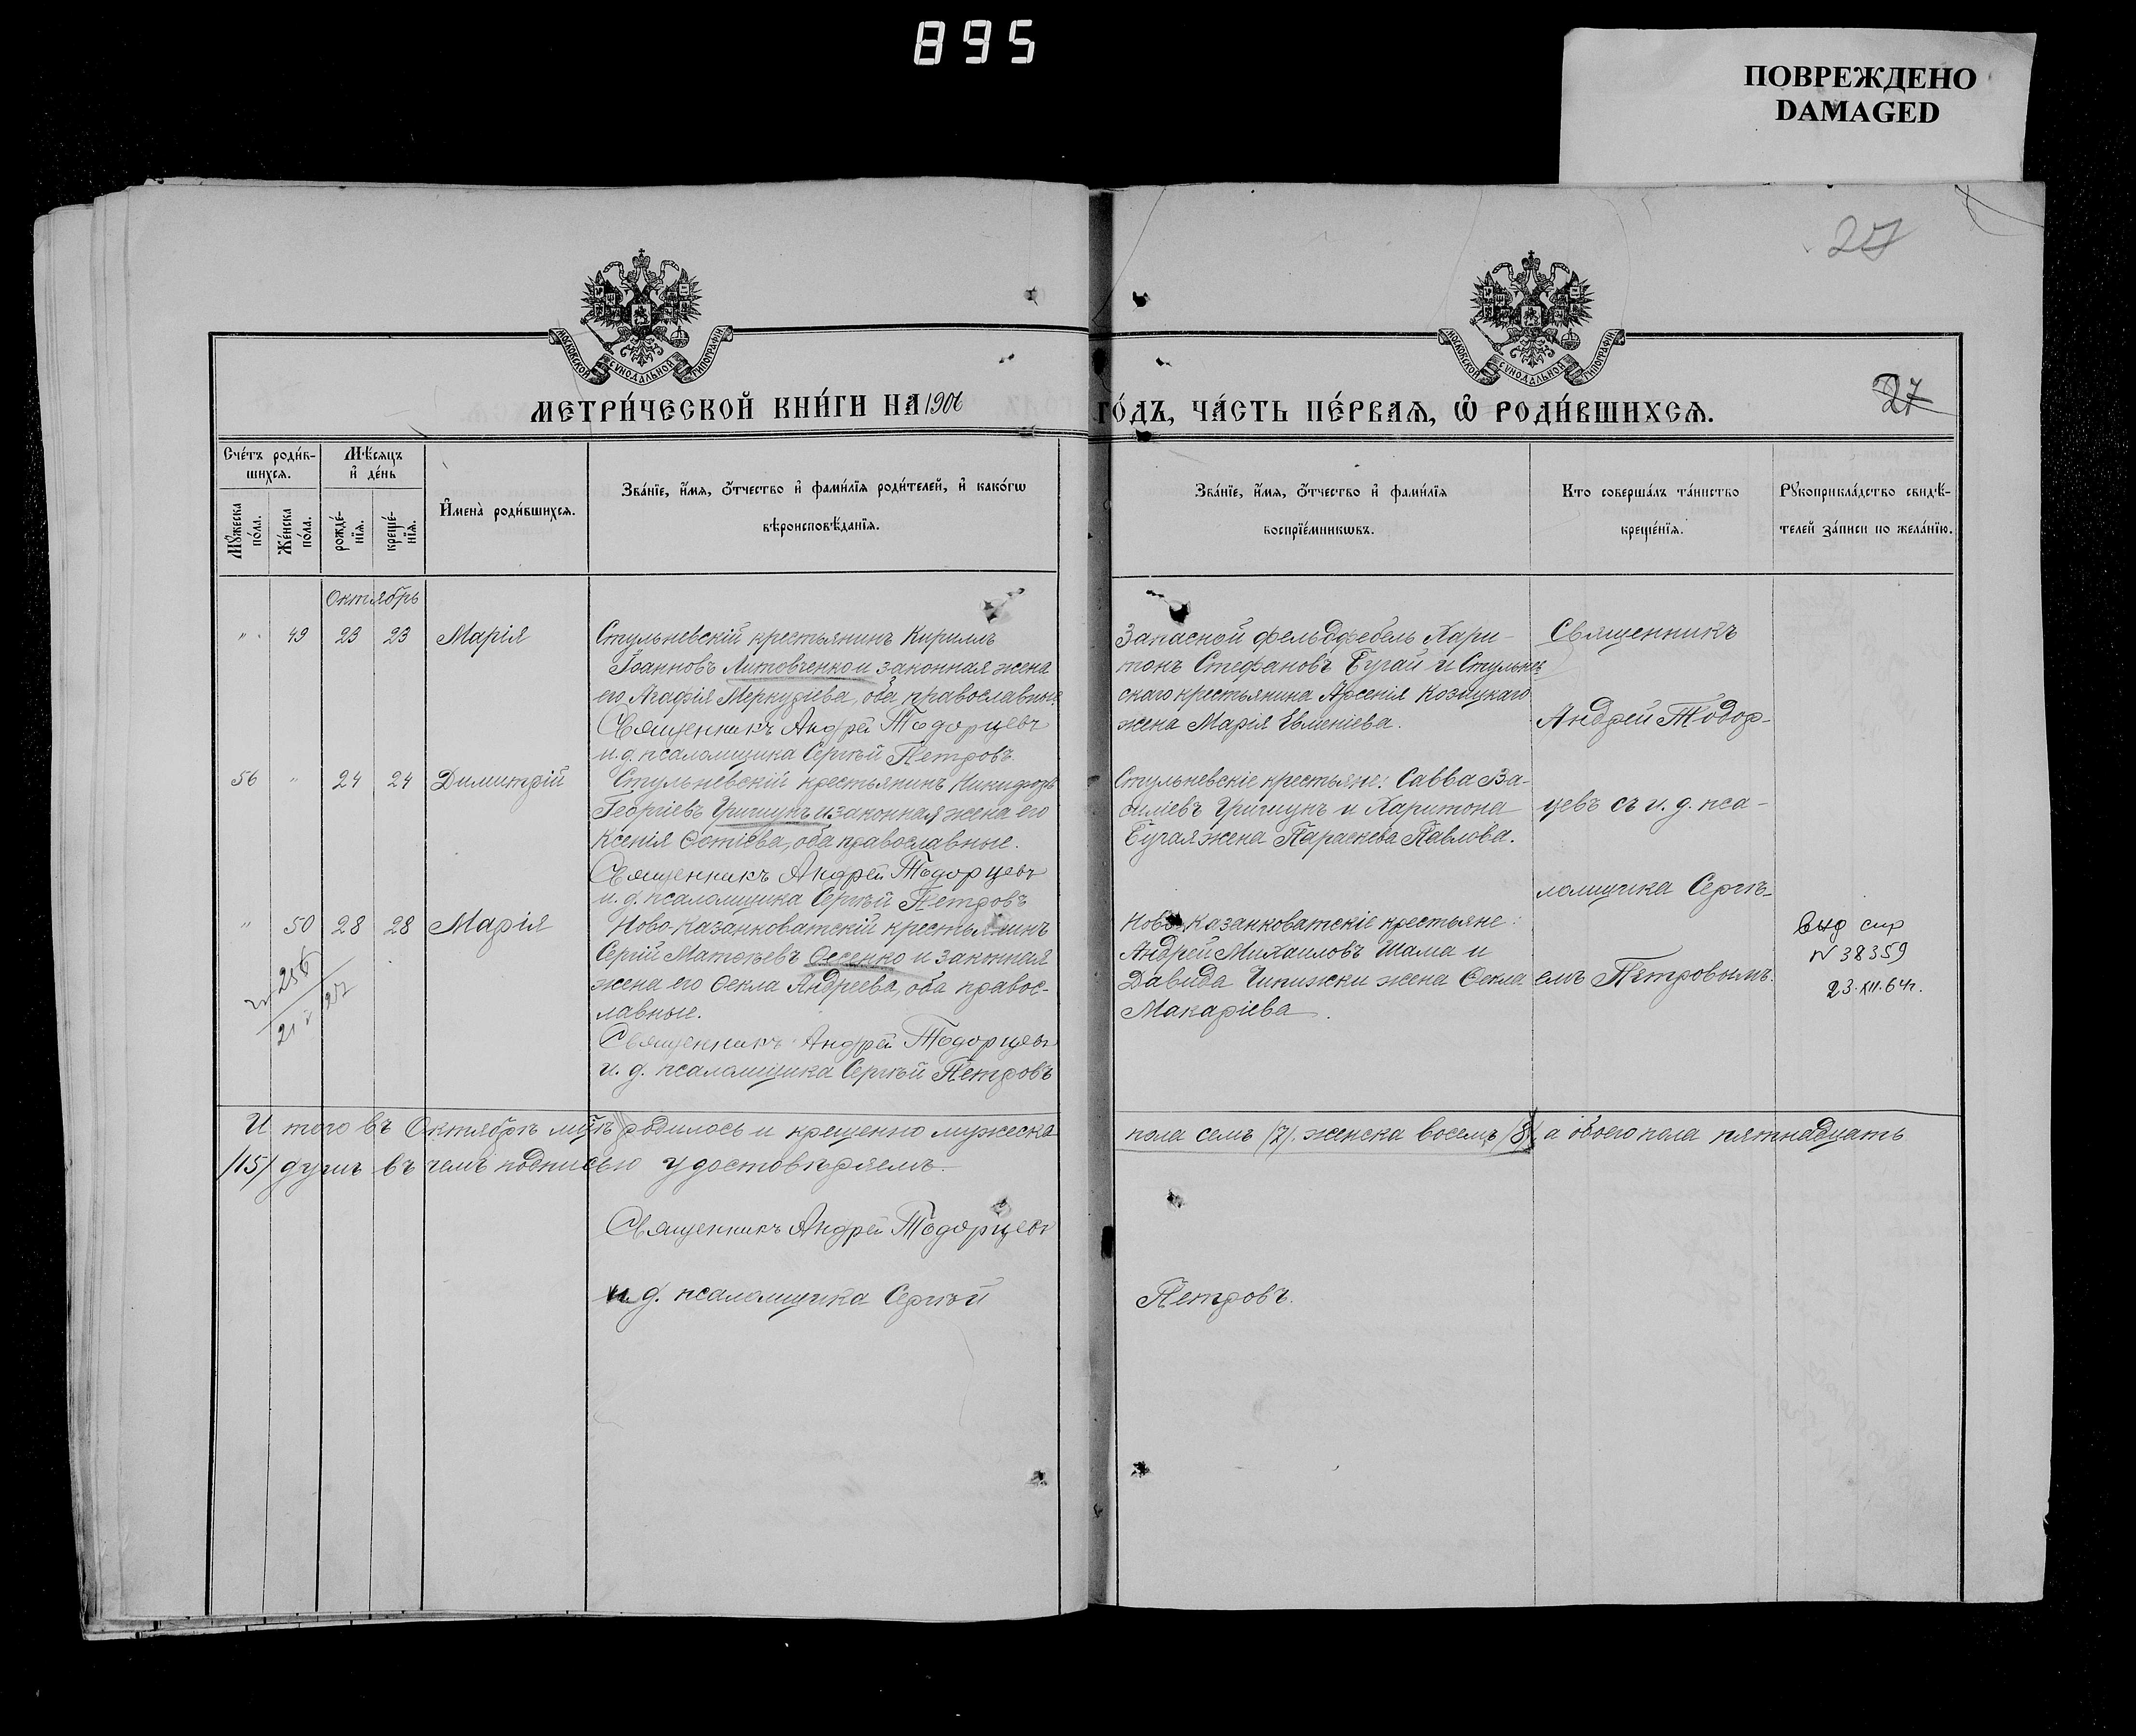 895
ПОВРЕЖДЕНО
DAMAGED
27
МОСКОВСКОЙ СУНОДАЛЬНОЙ ТИПОГРАФІИ
МОСКОВСКОЙ СУНОДАЛЬНОЙ ТИПОГРАФІИ
27
МЕТРИ́ЧЕСКОЙ КНИ́ГИ НА 1906 ГО́ДЪ, ЧА́СТЬ ПЕ́РВАѦ, Ѡ҆ РОДИ́ВШИХСѦ.
Сче́тъ роди́в-
шихсѧ.
Мѣ́сѧцъ
и҆ де́нь
Мꙋ́жеска
по́ла.
Же́нска
по́ла.
рожде́-
нїѧ.
креще́-
нїѧ.
И҆мена̀ роди́вшихсѧ.
Зва́нїе, и҆́мѧ, ѻ҆́тчество и҆ фами́лїѧ роди́телей, и҆ како́гѡ
вѣроисповѣ́данїѧ.
Зва́нїе, и҆́мѧ, ѻ҆́тчество и҆ фами́лїѧ
воспрїе́мникѡвъ.
Кто соверша́лъ та́инство
креще́нїѧ.
Рꙋкоприкла́дство свидѣ́-
телей за́писи по жела́нїю.
Октябрь
" 49 23 23 Марія
Стульневскій крестьянинъ Кириллъ
Іоанновъ Литовченко и законная жена
его Агафія Меркуріева, оба православные
Священникъ Андрей Тодорцевъ
и. д. псаломщика Сергѣй Петровъ.
Запасной фельдфебель Хари-
тонъ Стефановъ Бугай и Стульнев-
скаго крестьянина Арсенія Козицкаго
жена Марія Евменіева.
Священникъ
Андрей Тодор-
56 " 24 24 Димитрій
Стульневскій крестьянинъ Никифоръ
Георгіевъ Гричунъ и законная жена его
Ксенія Фотіева, оба православные.
Священникъ Андрей Тодорцевъ
и. д. псаломщика Сергѣй Петровъ
Стульневскіе крестьяне: Савва Ва-
силіевъ Гричунъ и Харитона
Бугая жена Параскева Павлова.
цевъ съ и. д. пса-
ломщика Сергѣ-
" 50 28 28 Марія
Ново-Казанковатскій крестьянинъ
Сергій Матѳѣевъ Фесенко и законная
жена его Ѳекла Андреева, оба правос-
лавные.
Священникъ Андрей Тодорцевъ
и. д. псаломщика Сергѣй Петровъ
Ново-Казанковатскіе крестьяне:
Андрей Михаиловъ Шама и
Давида Чипижки жена Ѳекла
Макаріева.
емъ Петровымъ.
выд спр
N 38359
23.XII.64г.
И того въ Октябрѣ м-цѣ родилось и крещенно мужеска пола семь /7/. женска восемь /8/, а обоего пола пятнадцать
/15/ душъ въ чемъ подписью удостовѣряемъ.
Священникъ Андрей Тодорцевъ
и. д. псаломщика Сергѣй Петровъ.